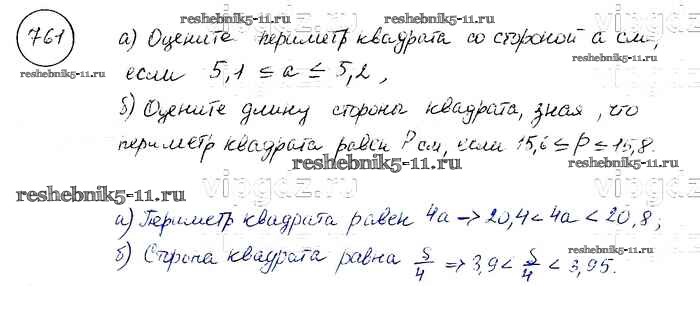 761
reshebnik5-11.ru
а) Оцените периметр квадрата со стороной а см,
reshebnik5-11.ru
если 5,1 ≤ a ≤ 5,2,
reshebnik5-11.ru
б) Оцените длину стороны квадрата, зная, что
периметр квадрата равен P см, если 15,6 ≤ P ≤ 15,8.
reshebnik5-11.ru
reshebnik5-11.ru
vipgdz.ru
а) Периметр квадрата равен 4a → 20,4 < 4a < 20,8;
б) Сторона квадрата равна S/4 ⇒ 3,9 < S/4 < 3,95.
reshebnik5-11.ru
reshebnik5-11.ru